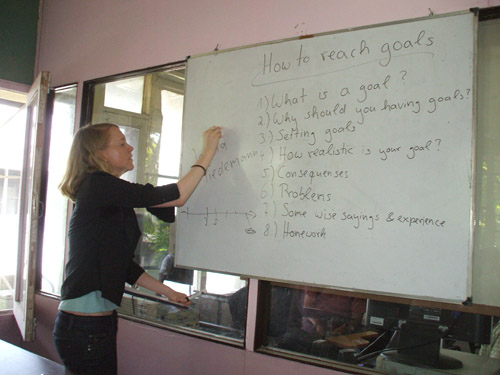 How to reach goals
1) What is a goal?
2) Why should you having goals?
3) Setting goals
4) How realistic is your goal?
5) Consequenses
6) Problems
7) Some wise sayings & experience
8) Homework